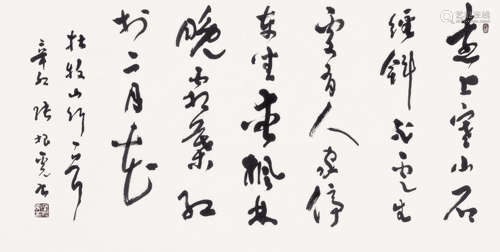 远上寒山石
径斜白云生
处有人家停
车坐爱枫林
晚霜叶红
于二月花
杜牧山行一首
辛卯张旭光